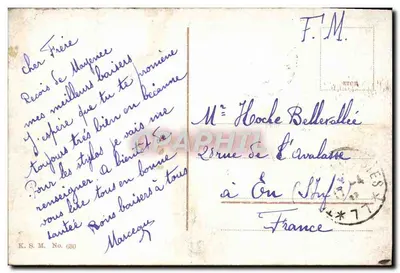 Cher Frère
Reçois de Mayence
mes meilleurs baisers
J'espère que tu te promène
toujours très bien en bécanne
Pour les stylos je vais me
renseigner A bientôt de
vous lire tous en bonne
santée Bons baisers à tous
Marceau
K. S. M. No.
F.M.
Mr Hoche Bellevallée
28 rue de l'Avalasse
à Eu (S. Inf)
France